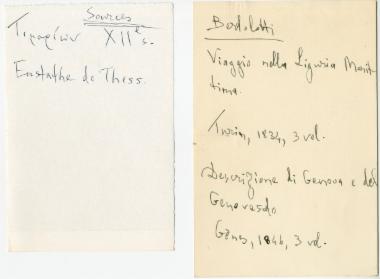 Sources
XIIe s.
Eustathe de Thess.
Bertolotti
Viaggio nella Liguria Marit-
tima.
Turin, 1834, 3 vol.
Descrizione di Genova e del
Genovesdo
Gênes, 1846, 3 vol.